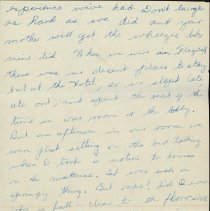 experience we've had. Don't laugh
as hard as we did and your
mother will get the wheezes like
mine did. When we were in
there was no decent place to stay
but at the Hotel, so we slept
ate out, and spent the rest of the
time in our room or the lobby.
But one afternoon in our room we
were just sitting on the bed talking
when I took a notion to bounce
on the mattress. It was such a
springy thing. But oops! did I ever
clear to the floor and